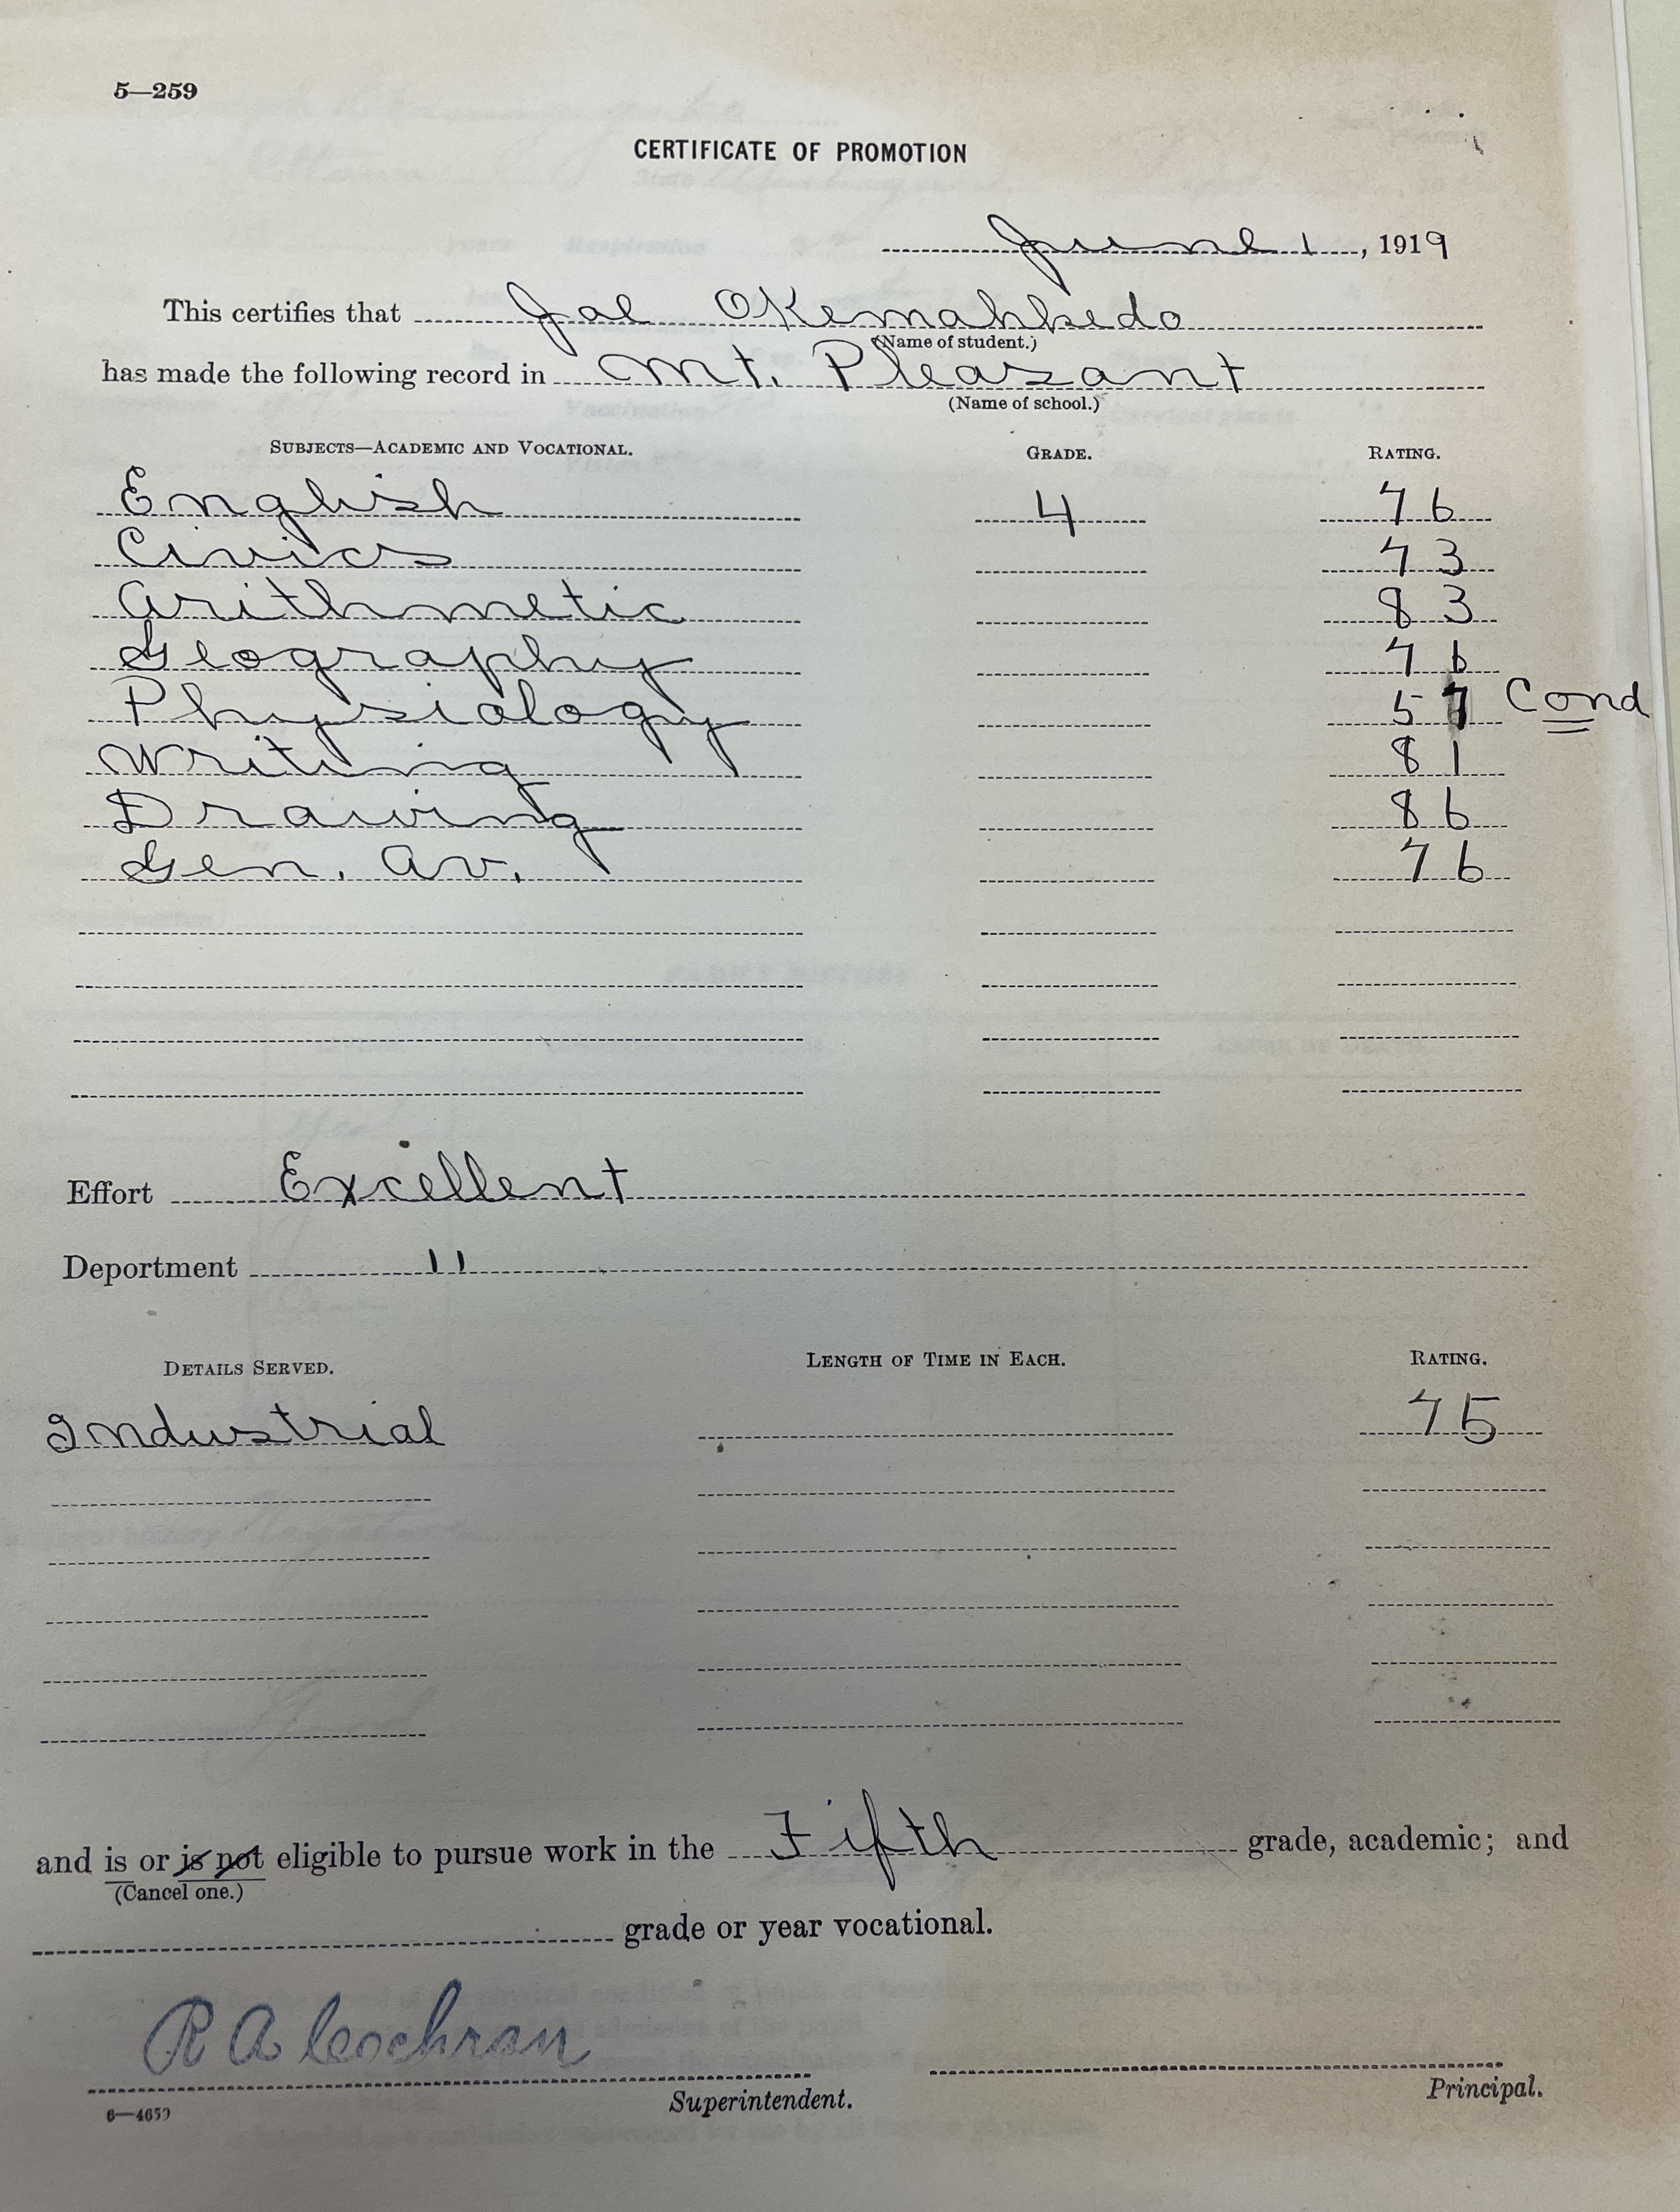 5—259
CERTIFICATE OF PROMOTION
June 1, 1919
This certifies that Joe Okemahkedo
(Name of student.)
has made the following record in Mt. Pleasant
(Name of school.)
SUBJECTS—ACADEMIC AND VOCATIONAL. GRADE. RATING.
English 4 76
Civics 73
Arithmetic 83
Geography 76
Physiology 57 Cond
Writing 81
Drawing 86
Gen. Av. 76
Effort Excellent
Deportment "
DETAILS SERVED. LENGTH OF TIME IN EACH. RATING.
Industrial 75
and is or is not eligible to pursue work in the Fifth grade, academic; and
(Cancel one.)
grade or year vocational.
R A Cochran
Superintendent. Principal.
6—4659